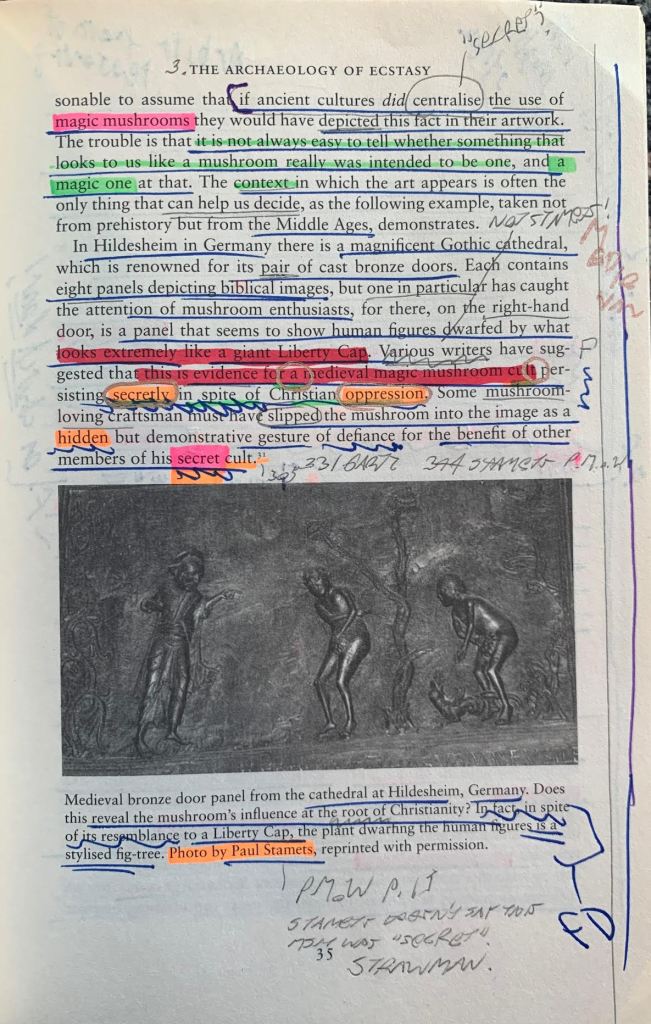 "SECRET".
3. THE ARCHAEOLOGY OF ECSTASY
sonable to assume that if ancient cultures did centralise the use of
magic mushrooms they would have depicted this fact in their artwork.
The trouble is that it is not always easy to tell whether something that
looks to us like a mushroom really was intended to be one, and a
magic one at that. The context in which the art appears is often the
only thing that can help us decide, as the following example, taken not
from prehistory but from the Middle Ages, demonstrates. NOT STAMETS!
In Hildesheim in Germany there is a magnificent Gothic cathedral,
which is renowned for its pair of cast bronze doors. Each contains
eight panels depicting biblical images, but one in particular has caught
the attention of mushroom enthusiasts, for there, on the right-hand
door, is a panel that seems to show human figures dwarfed by what
looks extremely like a giant Liberty Cap. Various writers have sug-
gested that this is evidence for a medieval magic mushroom cult per-
sisting secretly in spite of Christian oppression. Some mushroom-
loving craftsman must have slipped the mushroom into the image as a
hidden but demonstrative gesture of defiance for the benefit of other
members of his secret cult.31
Medieval bronze door panel from the cathedral at Hildesheim, Germany. Does
this reveal the mushroom's influence at the root of Christianity? In fact, in spite
of its resemblance to a Liberty Cap, the plant dwarfing the human figures is a
stylised fig-tree. Photo by Paul Stamets, reprinted with permission.
PMoW P.15
STAMETS DOESN'T SAY THIS
WAS "SECRET".
35
STRAWMAN.